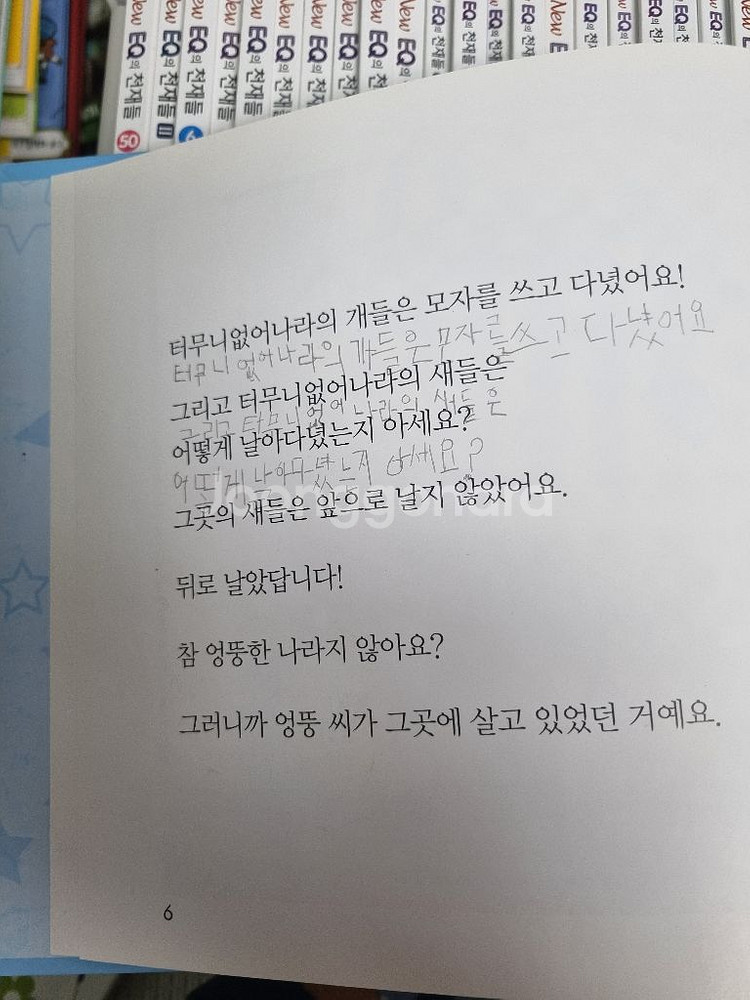 New EQ의 천재들 50
New EQ의 천재들
New EQ의 천재들 6
New EQ의 천재들
New EQ의 천재들
New EQ의 천재들
New EQ의 천재들
New EQ의 천재들
New EQ의
New EQ의
EQ의 천재들
EQ의 천재들
EQ의 천재들
EQ의 천재들
New E
EQ의 천재들
EQ의 천재들
EQ의 천재들
EQ의 천재들
EQ의 천재들
터무니없어나라의 개들은 모자를 쓰고 다녔어요!
터무니 없어나라의 개들은 모자를 쓰고 다녔어요
그리고 터무니없어나라의 새들은
그리고 터무니 없어 나라의 새들은
어떻게 날아다녔는지 아세요?
는지 아세요?
그곳의 새들은 앞으로 날지 않았어요.
Joonggonara
뒤로 날았답니다!
참 엉뚱한 나라지 않아요?
그러니까 엉뚱 씨가 그곳에 살고 있었던 거예요.
6